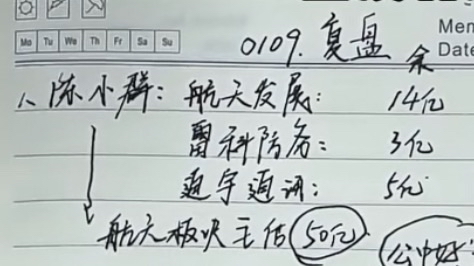 Mo Tu We Th Fr Sa Su
Mem
Date
0109. 复盘
余
1、陈小群: 航天发展: 14亿
雷科防务: 3亿
通宇通讯: 5亿
航天板块主估 50亿